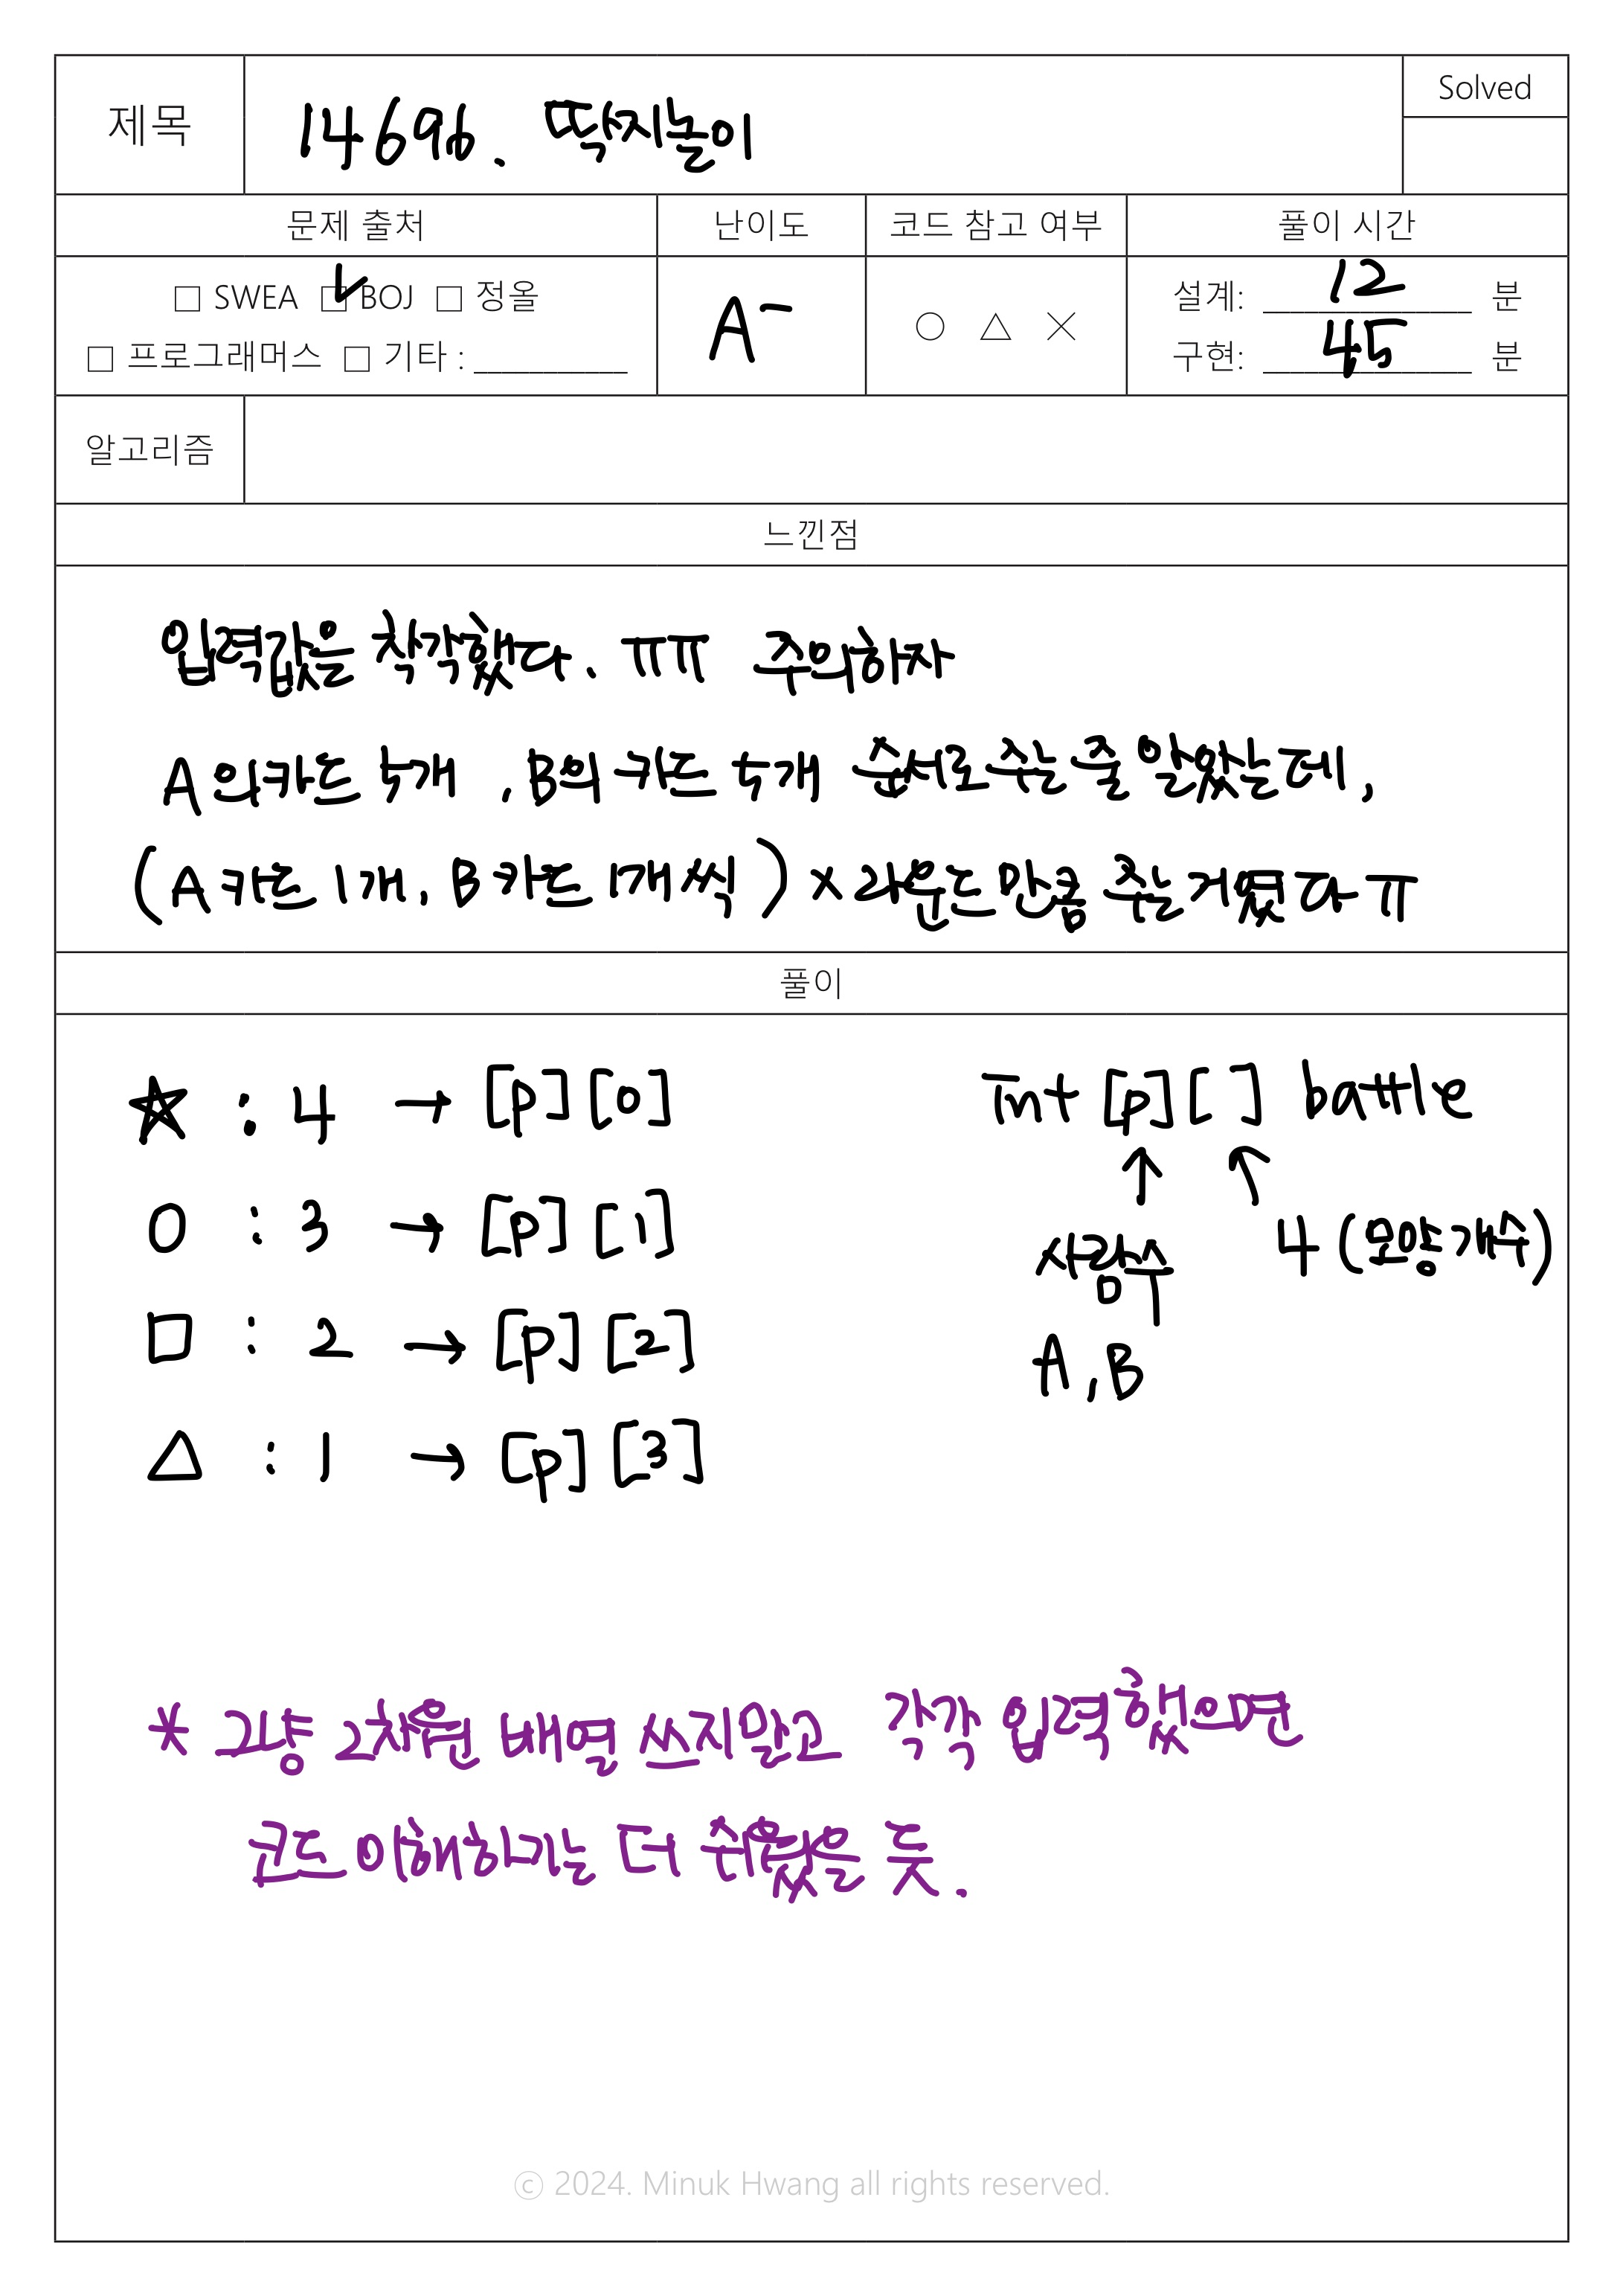 제목
14696. 딱지놀이
Solved
문제 출처
난이도
코드 참고 여부
풀이 시간
□ SWEA □ BOJ □ 정올
□ 프로그래머스 □ 기타 : __________
A-
○ △ ×
설계: 12 분
구현: 45 분
알고리즘
느낀점
입력값을 착각했다. ㅠㅠ 주의하자
A의 카드 4개, B의 카드 4개 순서로 주는 줄 알았는데,
(A 카드 1개, B 카드 1개씩) × 라운드만큼 주는거였다ㅠ
풀이
☆ : 4 → [p][0]
○ : 3 → [p][1]
□ : 2 → [p][2]
△ : 1 → [p][3]
int [p][ ] battle
↑ ↑
사람수
4 (모양 개수)
A, B
* 그냥 2차원 배열 쓰지말고 각각 입력했으면
코드 이해하기는 더 쉬웠을 듯.
© 2024. Minuk Hwang all rights reserved.